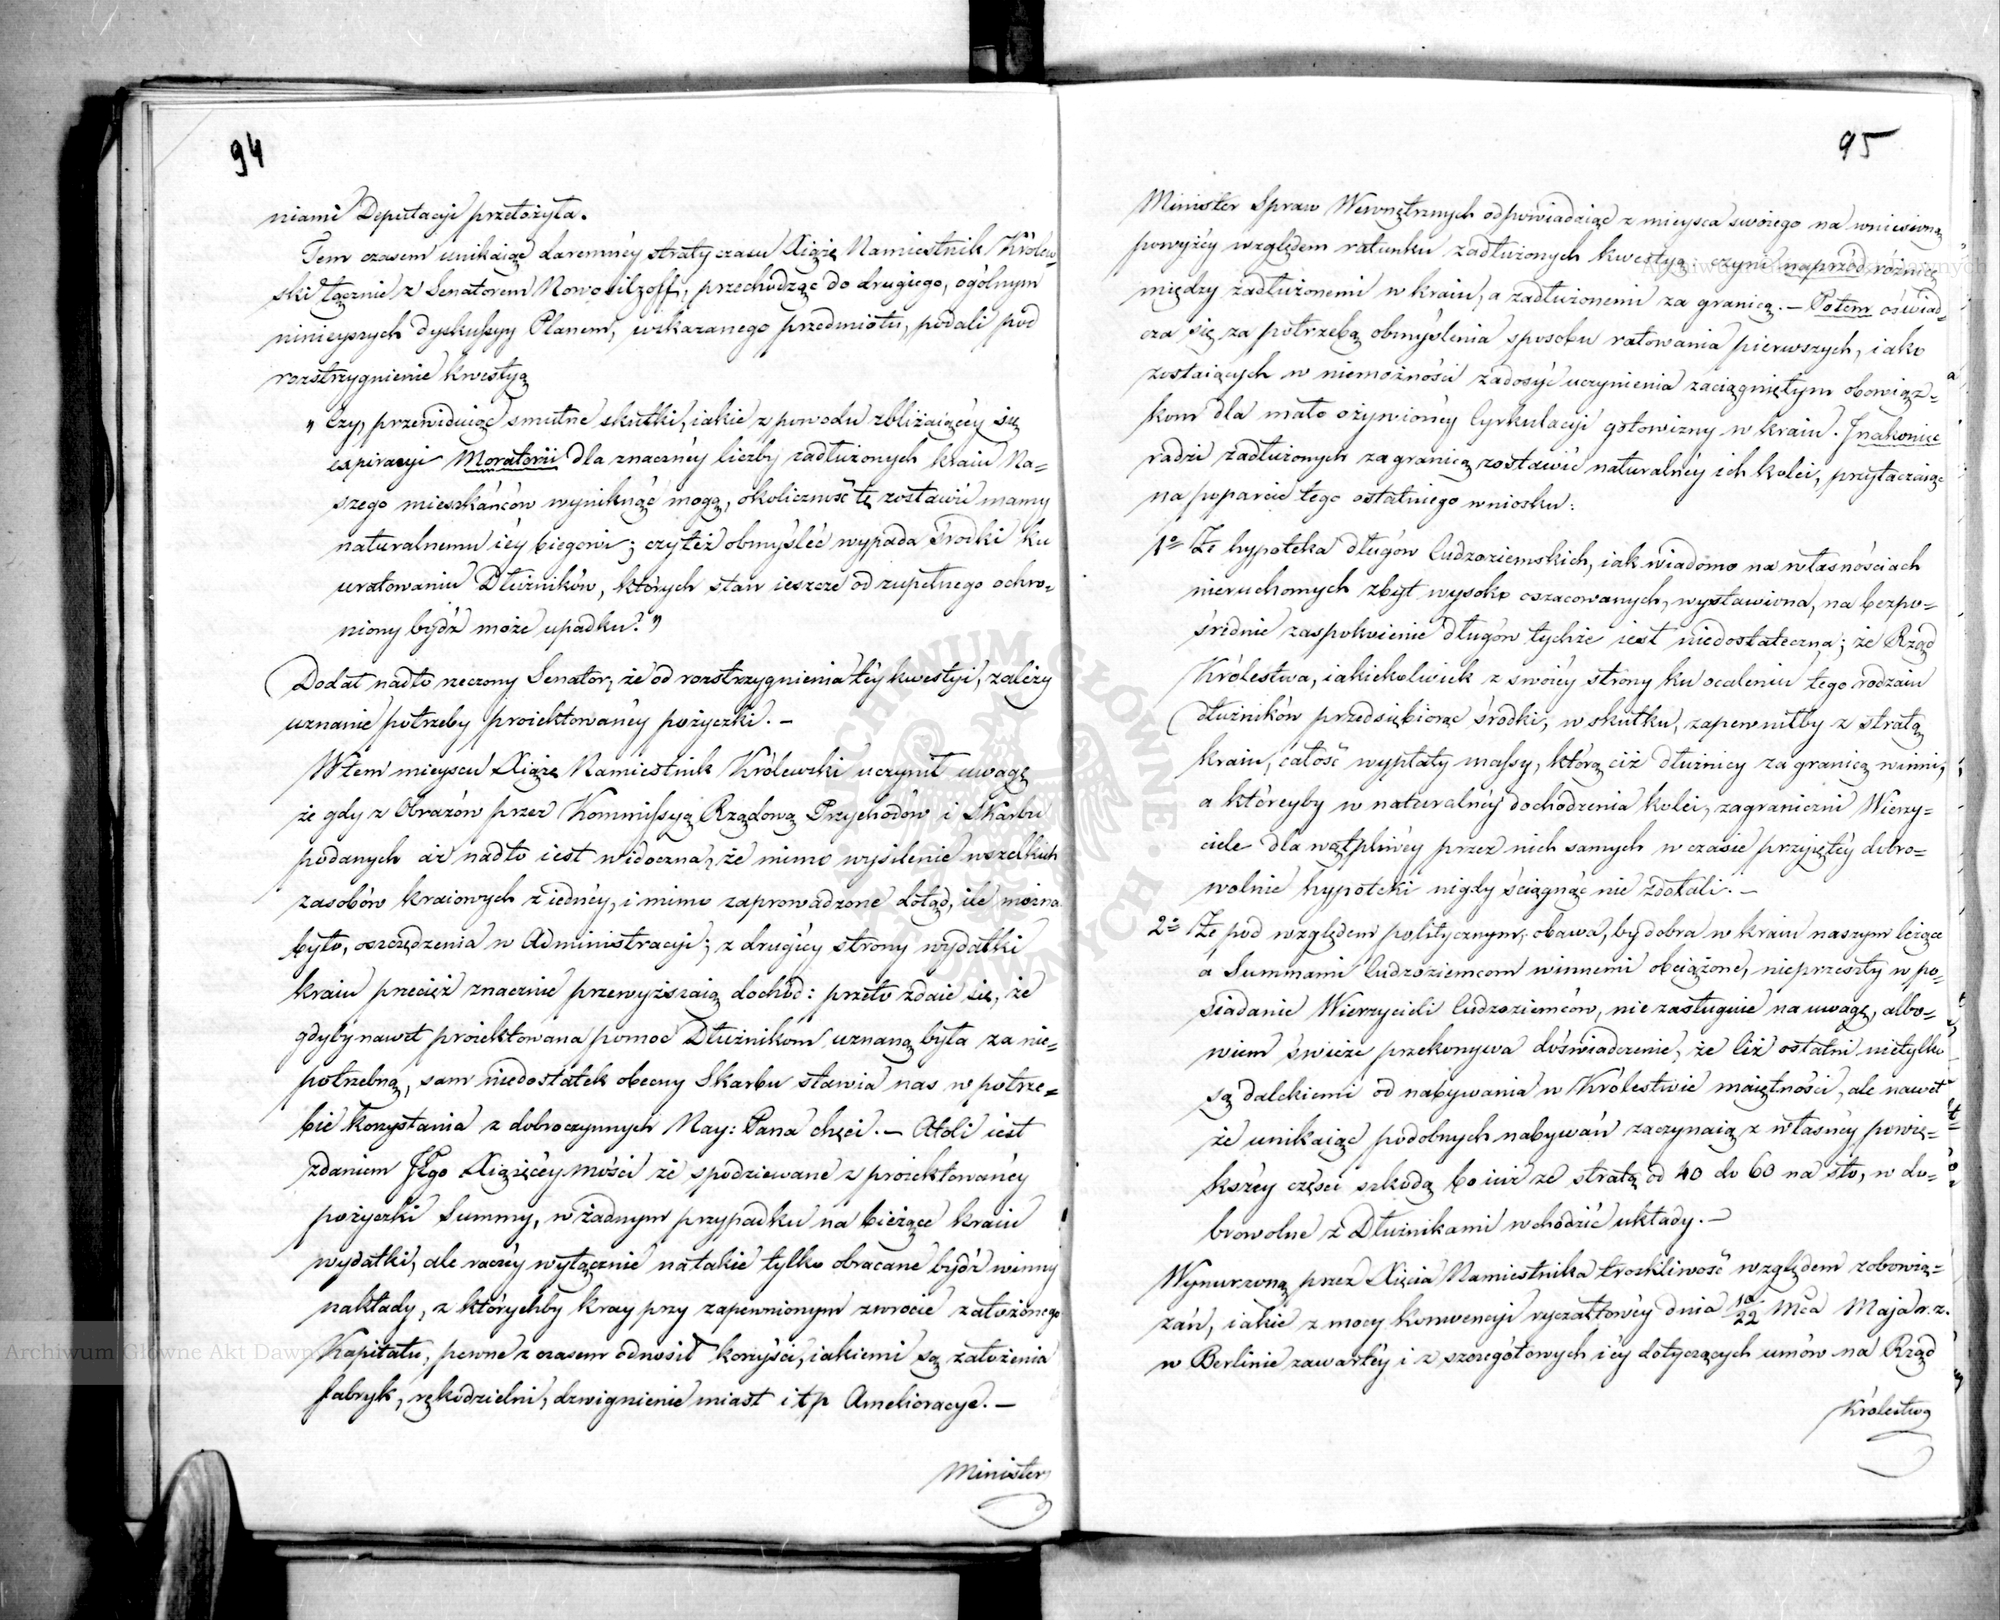 94
niami Deputacyi przełożyła.
Tem czasem unikaiąc daremnéy straty czasu Xiążę Namiestnik Królew-
ski łącznie z Senatorem Nowosilzoff, przechodząc do drugiego, ogólnym
ninieyszych dyskussyy Planem, wskazanego przedmiotu, podali pod
rozstrzygnienie kwestyą
„Czy, przewiduiąc smutne skutki, iakie z powodu zbliżaiącéy się
expiracyi Moratorii dla znacznéy liczby zadłużonych kraiu Na-
szego mieszkańców wyniknąć mogą, okoliczność tę zostawić mamy
naturalnemu iéy biegowi; czy też obmyśléć wypada środki ku
uratowaniu Dłużników, których stan ieszcze od zupełnego ochro-
niony bydź może upadku?”
Dodał nadto rzeczony Senator, że od rozstrzygnienia téy kwestyi, zależy
uznanie potrzeby proiektowanéy pożyczki. —
W tem mieyscu Xiążę Namiestnik Królewski uczynił uwagę
że gdy z Obrazów przez Kommissyą Rządową Przychodów i Skarbu
podanych aż nadto iest widoczna, że mimo wysilenie wszelkich
zasobów kraiowych z iednéy, i mimo zaprowadzone dotąd, ile można
było, oszczędzenia w Administracyi; z drugiéy strony wydatki
kraiu przecież znacznie przewyższaią dochód: przeto zdaie się, że
gdyby nawet proiektowana pomoc Dłużnikom uznaną była za nie-
potrzebną, sam niedostatek obecny Skarbu stawia nas w potrze-
bie korzystania z dobroczynnych Nay: Pana chęci. — Atoli iest
zdaniem JEgo Xiążęcéy Mości że spodziewane z proiektowanéy
pożyczki Summy, w żadnym przypadku na bieżące kraiu
wydatki, ale raczéy wyłącznie na takie tylko obracane bydź winny
nakłady, z którychby kray przy zapewnionym zwrocie założonego
Kapitału, pewne z czasem odnosił korzyści, iakiemi są założenia
fabryk, rękodzielni, dzwignienie miast i t p Amelioracye. —
Minister
95
Minister Spraw Wewnętrznych odpowiadaiąc z mieysca swoiego na wniesioną
powyżéy względem ratunku zadłużonych kwestyą, czyni naprzód różnicę
między zadłużonemi w kraiu, a zadłużonemi za granicą. — Potem oświad-
cza się za potrzebą obmyślenia sposobu ratowania pierwszych, iako
zostaiących w niemożności zadosyć uczynienia zaciągniętym obowiąz-
kom dla mało ożywionéy Cyrkulacyi gotowizny w kraiu. Jnakoniec
radzi zadłużonych zagranicą zostawić naturalnéy ich kolei, przytaczaiąc
na poparcie tego ostatniego wniosku:
1o Że hypoteka długów Cudzoziemskich, iak wiadomo na własnościach
nieruchomych zbyt wysoko oszacowanych, wystawiona, na bezpo-
średnie zaspokoienie długów tychże iest niedostateczna; że Rząd
Królestwa, iakiekolwiek z swoiéy strony ku ocaleniu tego rodzaiu
dłużników przedsiębiorąc środki, w skutku, zapewniłby z stratą
kraiu, całość wypłaty massy, którą ciż dłużnicy za granicą winni,
a któreyby w naturalnéy dochodzenia kolei, zagraniczni Wierzy-
ciele dla wątpliwéy przez nich samych w czasie przyiętéy dobro-
wolnie hypoteki nigdy ściągnąć nie zdołali. —
2o Że pod względem politycznym, obawa, by dobra w kraiu naszym leżące
a Summami Cudzoziemcom winnemi obciążone, nieprzeszły w po-
siadanie Wierzycieli Cudzoziemców, nie zasługuie na uwagę, albo-
wiem świeże przekonywa doświadczenie, że Ciż ostatni nietylko
są dalekiemi od nabywania w Królestwie maiętności, ale nawet
że unikaiąc podobnych nabywań zaczynaią z własnéy powię-
kszéy części szkodą bo iuż ze stratą od 40 do 60 na sto, w do-
browolne z Dłużnikami wchodzić układy. —
Wynurzoną przez Xięcia Namiestnika troskliwość względem zobowią-
zań, iakie z mocy konwencyi ryczałtowéy dnia 10/22 Mca Maja r. z.
w Berlinie zawartéy i z szczegółowych iéy dotyczących umów na Rząd
Królestwa
Archiwum Główne Akt Dawnych
ARCHIWUM GŁÓWNE AKT DAWNYCH